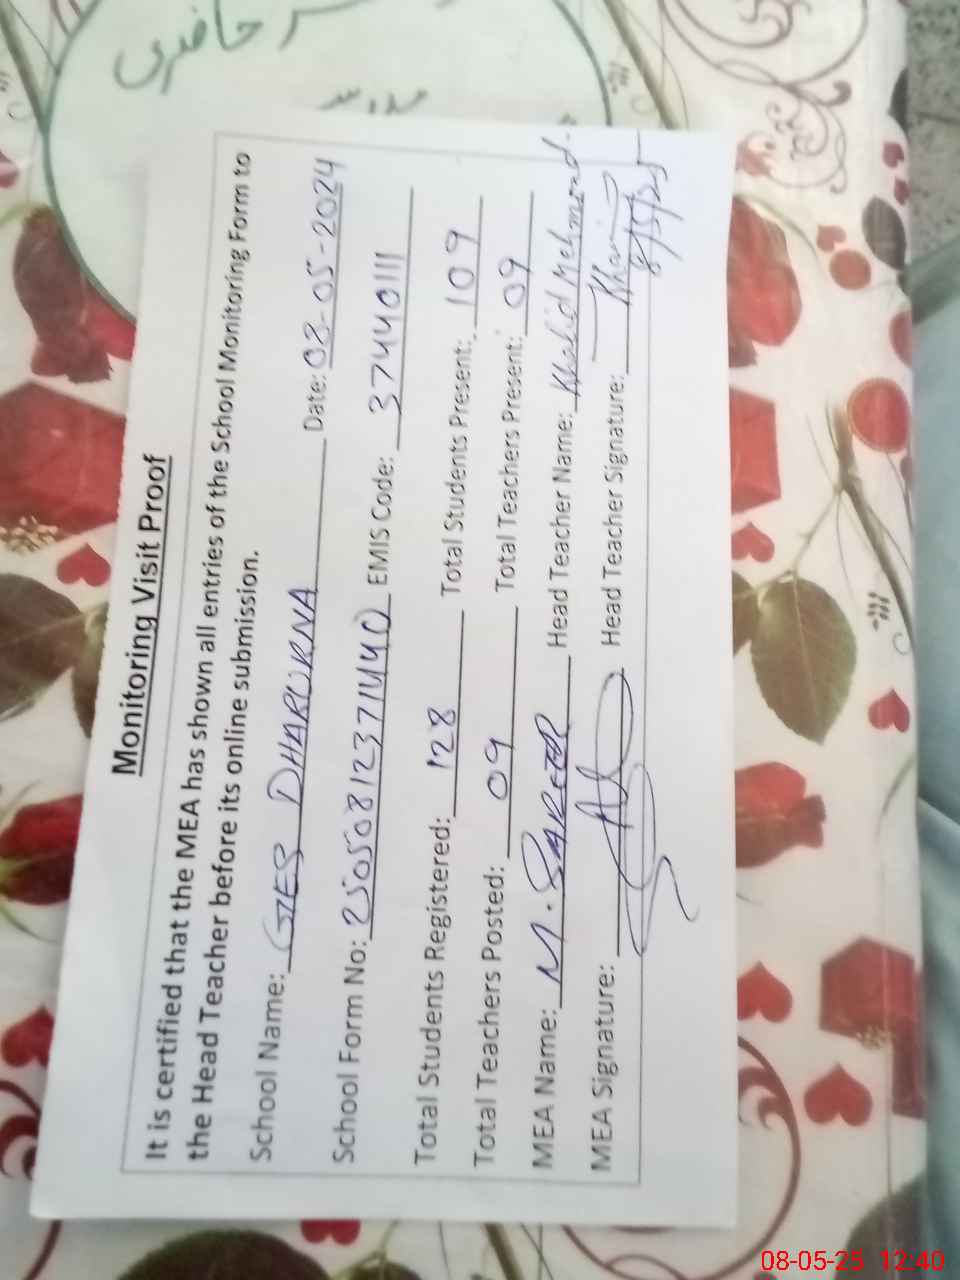 حاضری
Monitoring Visit Proof
It is certified that the MEA has shown all entries of the School Monitoring Form to
the Head Teacher before its online submission.
School Name: GES DHARURNA Date: 08-05-2024
School Form No: 25050812371440 EMIS Code: 37440111
Total Students Registered: 128 Total Students Present: 109
Total Teachers Posted: 09 Total Teachers Present: 09
MEA Name: M. SAREER Head Teacher Name: Khalid Mehmood.
MEA Signature: Head Teacher Signature:
8/5/25
08-05-25 12:40